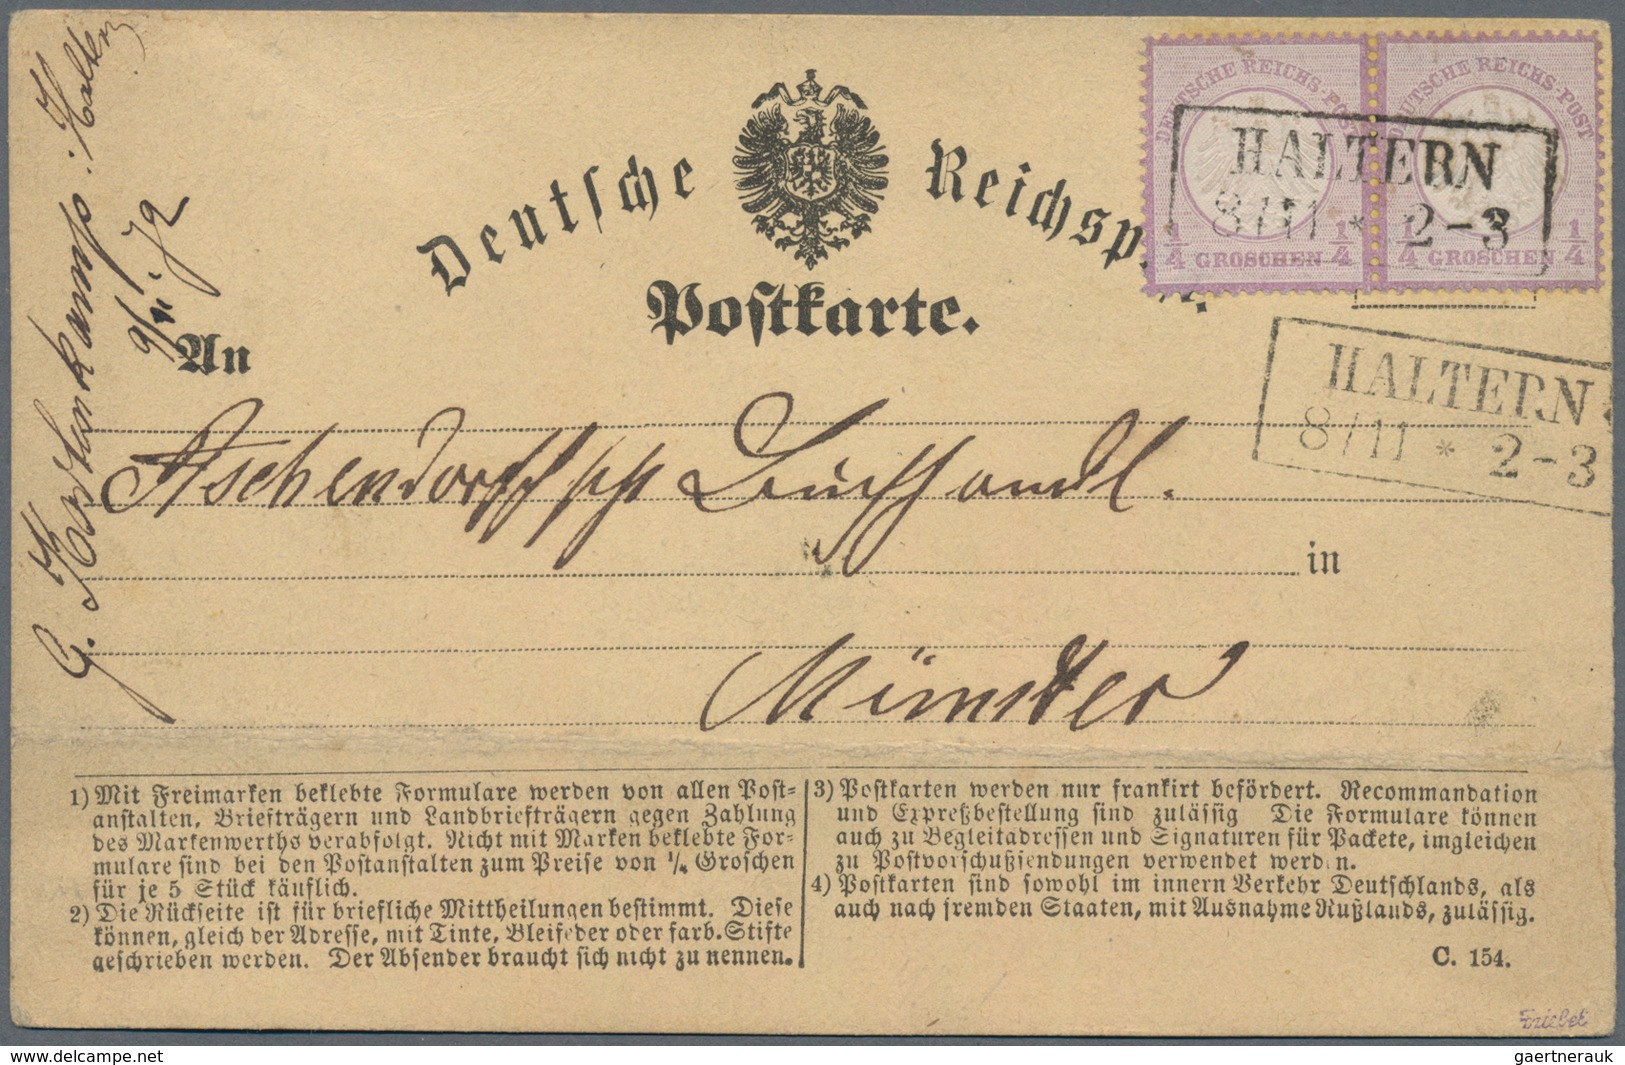 DEUTSCHE REICHS-POST
DEUTSCHE REICHS-POST
1/4 GROSCHEN 1/4
1/4 GROSCHEN 1/4
HALTERN
8/11 * 2-3
Deutsche Reichsp
Postkarte.
HALTERN
8/11 * 2-3
Haltern
9/11 72
An
Aschendorffsche Buchhandl.
in
Münster
1) Mit Freimarken beklebte Formulare werden von allen Post-
anstalten, Briefträgern und Landbriefträgern gegen Zahlung
des Markenwerths verabfolgt. Nicht mit Marken beklebte For-
mulare sind bei den Postanstalten zum Preise von 1/4 Groschen
für je 5 Stück käuflich.
2) Die Rückseite ist für briefliche Mittheilungen bestimmt. Diese
können, gleich der Adresse, mit Tinte, Bleifeder oder farb. Stifte
geschrieben werden. Der Absender braucht sich nicht zu nennen.
3) Postkarten werden nur frankirt befördert. Recommandation
und Expreßbestellung sind zulässig Die Formulare können
auch zu Begleitadressen und Signaturen für Packete, imgleichen
zu Postvorschußsendungen verwendet werden.
4) Postkarten sind sowohl im innern Verkehr Deutschlands, als
auch nach fremden Staaten, mit Ausnahme Rußlands, zulässig.
C. 154.
Friebel
gaertnerauk@delcampe.net